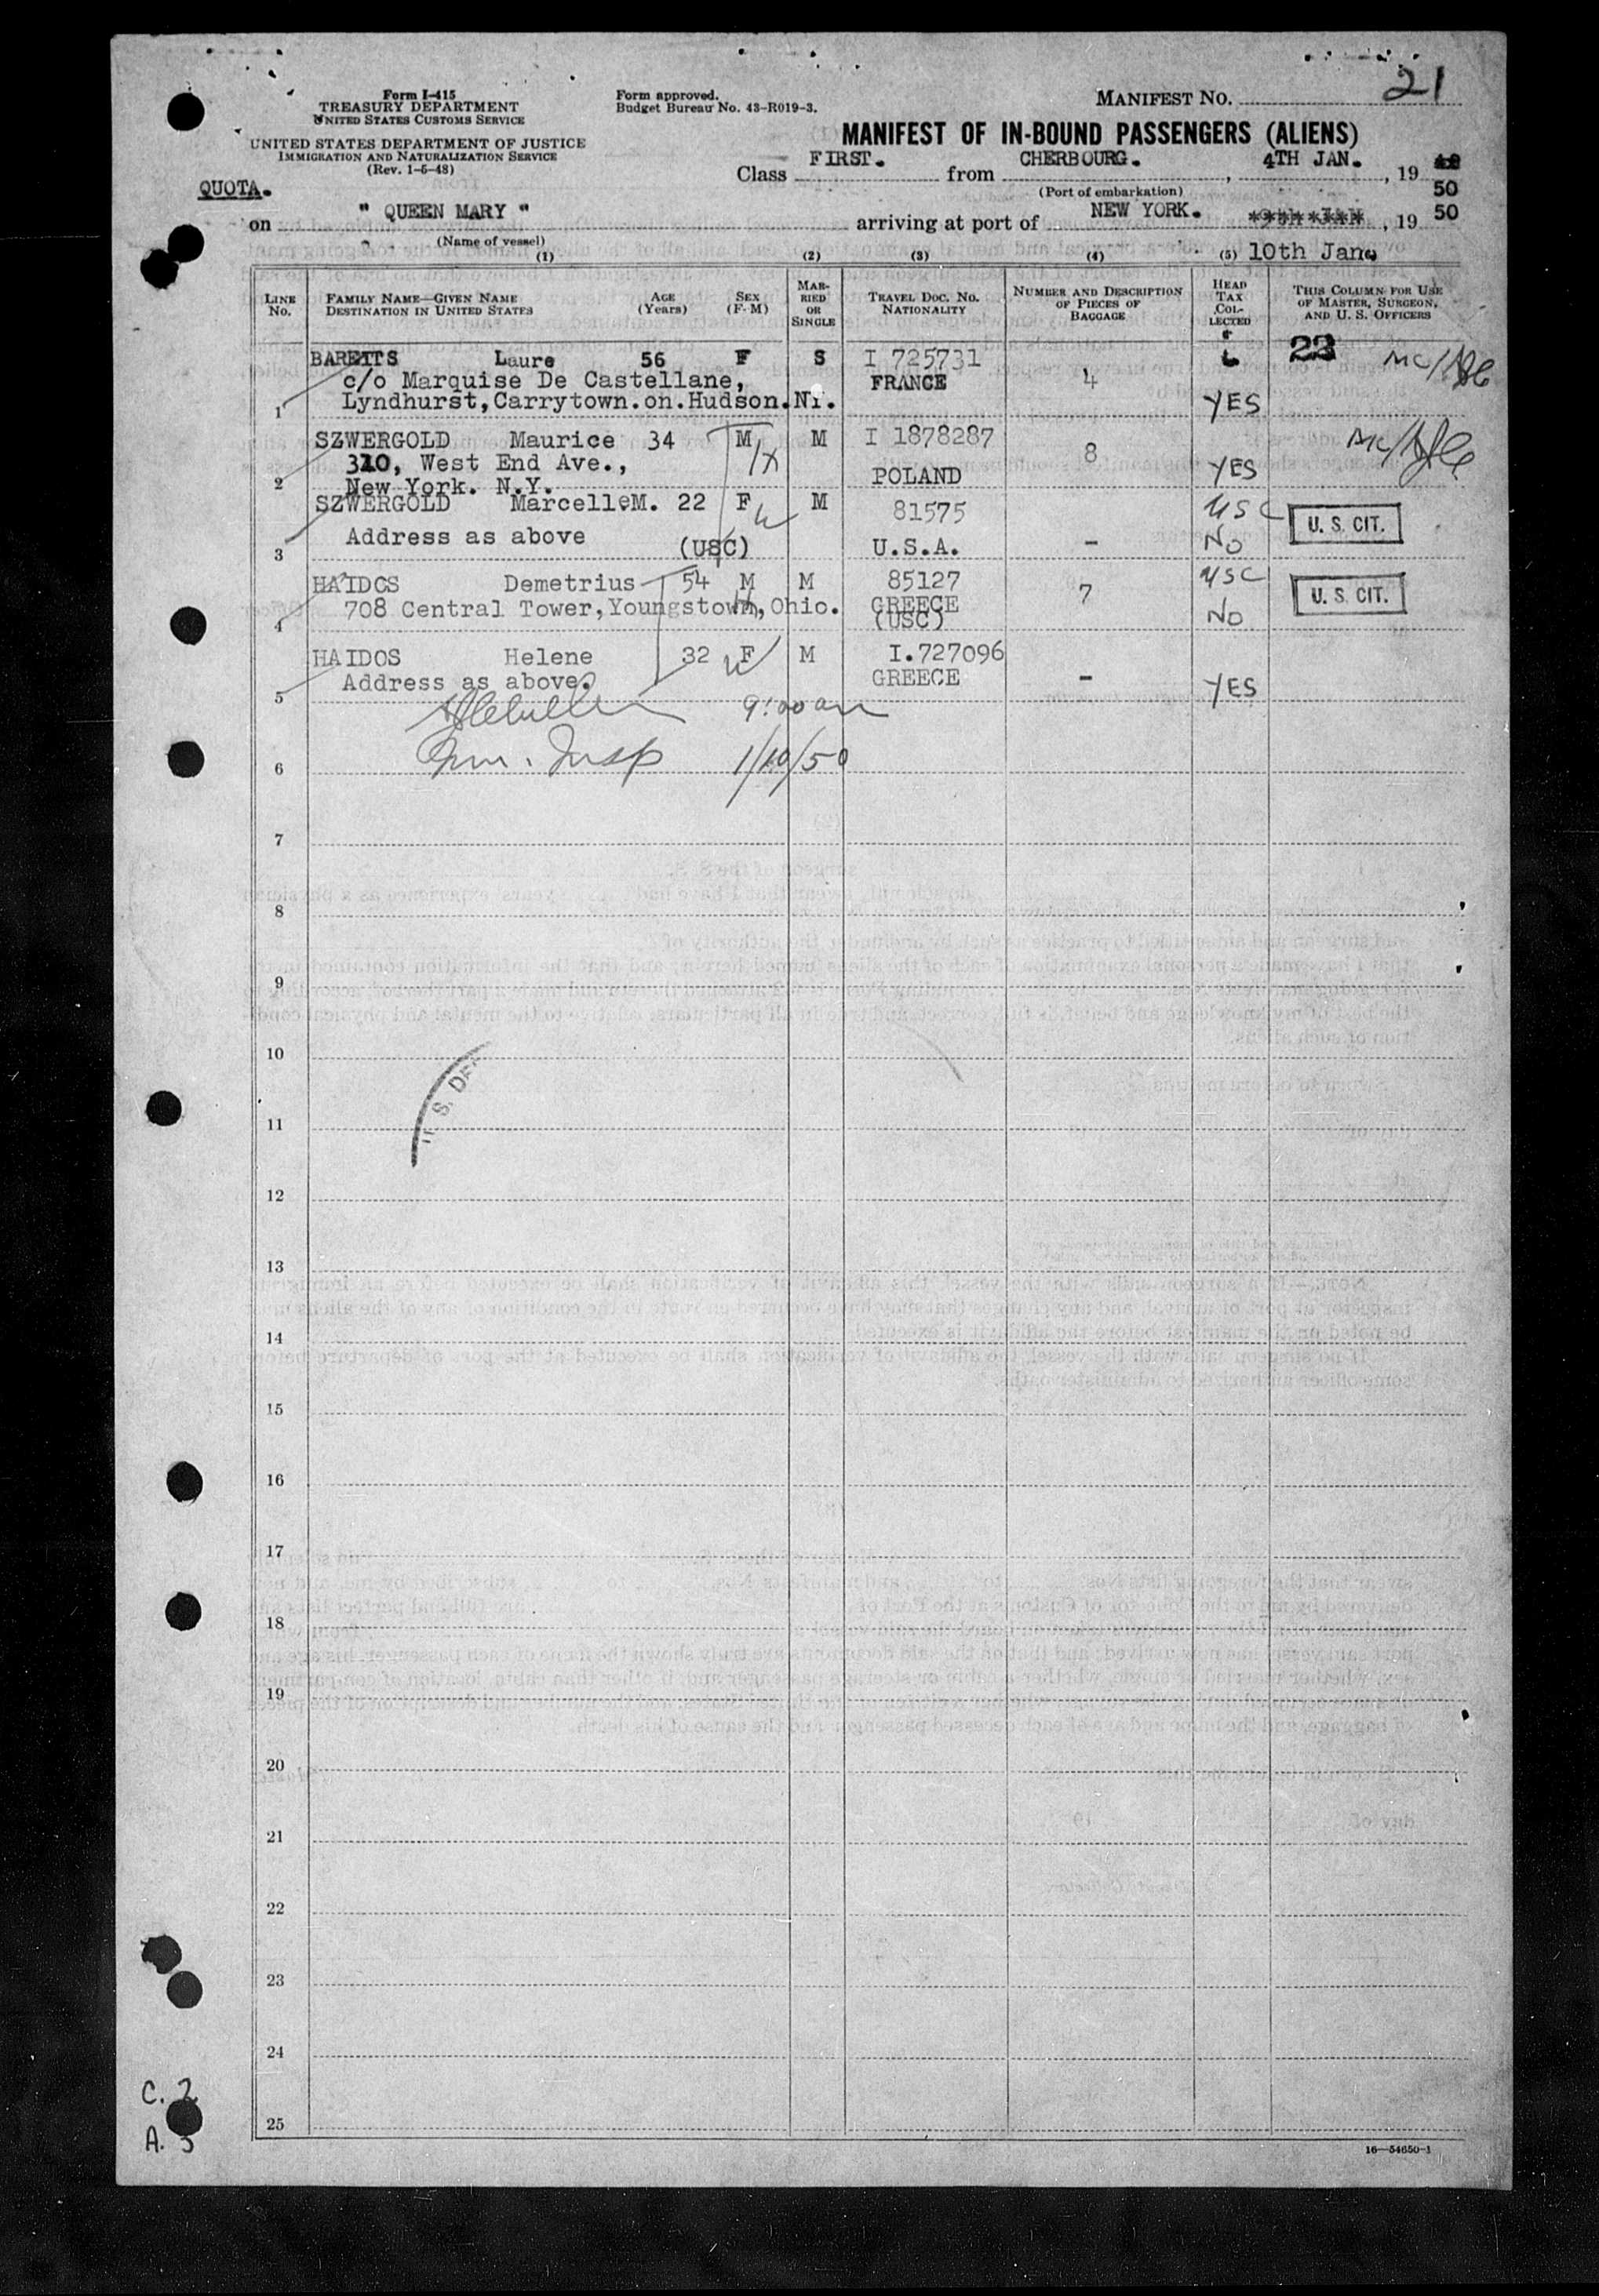 Form I-415
TREASURY DEPARTMENT
UNITED STATES CUSTOMS SERVICE
UNITED STATES DEPARTMENT OF JUSTICE
IMMIGRATION AND NATURALIZATION SERVICE
(Rev. 1-5-48)
Form approved.
Budget Bureau No. 43-R019-3.
MANIFEST NO. 21
MANIFEST OF IN-BOUND PASSENGERS (ALIENS)
Class FIRST. from CHERBOURG. , 4TH JAN. , 19 50
(Port of embarkation)
QUOTA.
on " QUEEN MARY " arriving at port of NEW YORK. , 19 50
(Name of vessel)
10th Jan.
(1) (2) (3) (4) (5)
LINE No. FAMILY NAME—GIVEN NAME DESTINATION IN UNITED STATES AGE (Years) SEX (F-M) MARRIED OR SINGLE TRAVEL DOC. NO. NATIONALITY NUMBER AND DESCRIPTION OF PIECES OF BAGGAGE HEAD TAX COLLECTED THIS COLUMN FOR USE OF MASTER, SURGEON, AND U. S. OFFICERS
BARETTS Laure 56 F S I 725731 23
c/o Marquise De Castellane, FRANCE 4
1 Lyndhurst,Carrytown.on.Hudson.NY. YES
SZWERGOLD Maurice 34 M M I 1878287
310, West End Ave., 8
2 New York. N.Y. POLAND YES
SZWERGOLD MarcelleM. 22 F M 81575 USC U. S. CIT.
3 Address as above (USC) U.S.A. - No
HAIDOS Demetrius 54 M M 85127 7 USC U. S. CIT.
4 708 Central Tower,Youngstown,Ohio. GREECE (USC) No
HAIDOS Helene 32 F M I.727096
5 Address as above. GREECE - YES
9:00 am
6 Imm. Insp 1/10/50
7
8
9
10
U. S. DE
11
12
13
14
15
16
17
18
19
20
21
22
23
24
25
C. 2
A. 3
16—54650-1